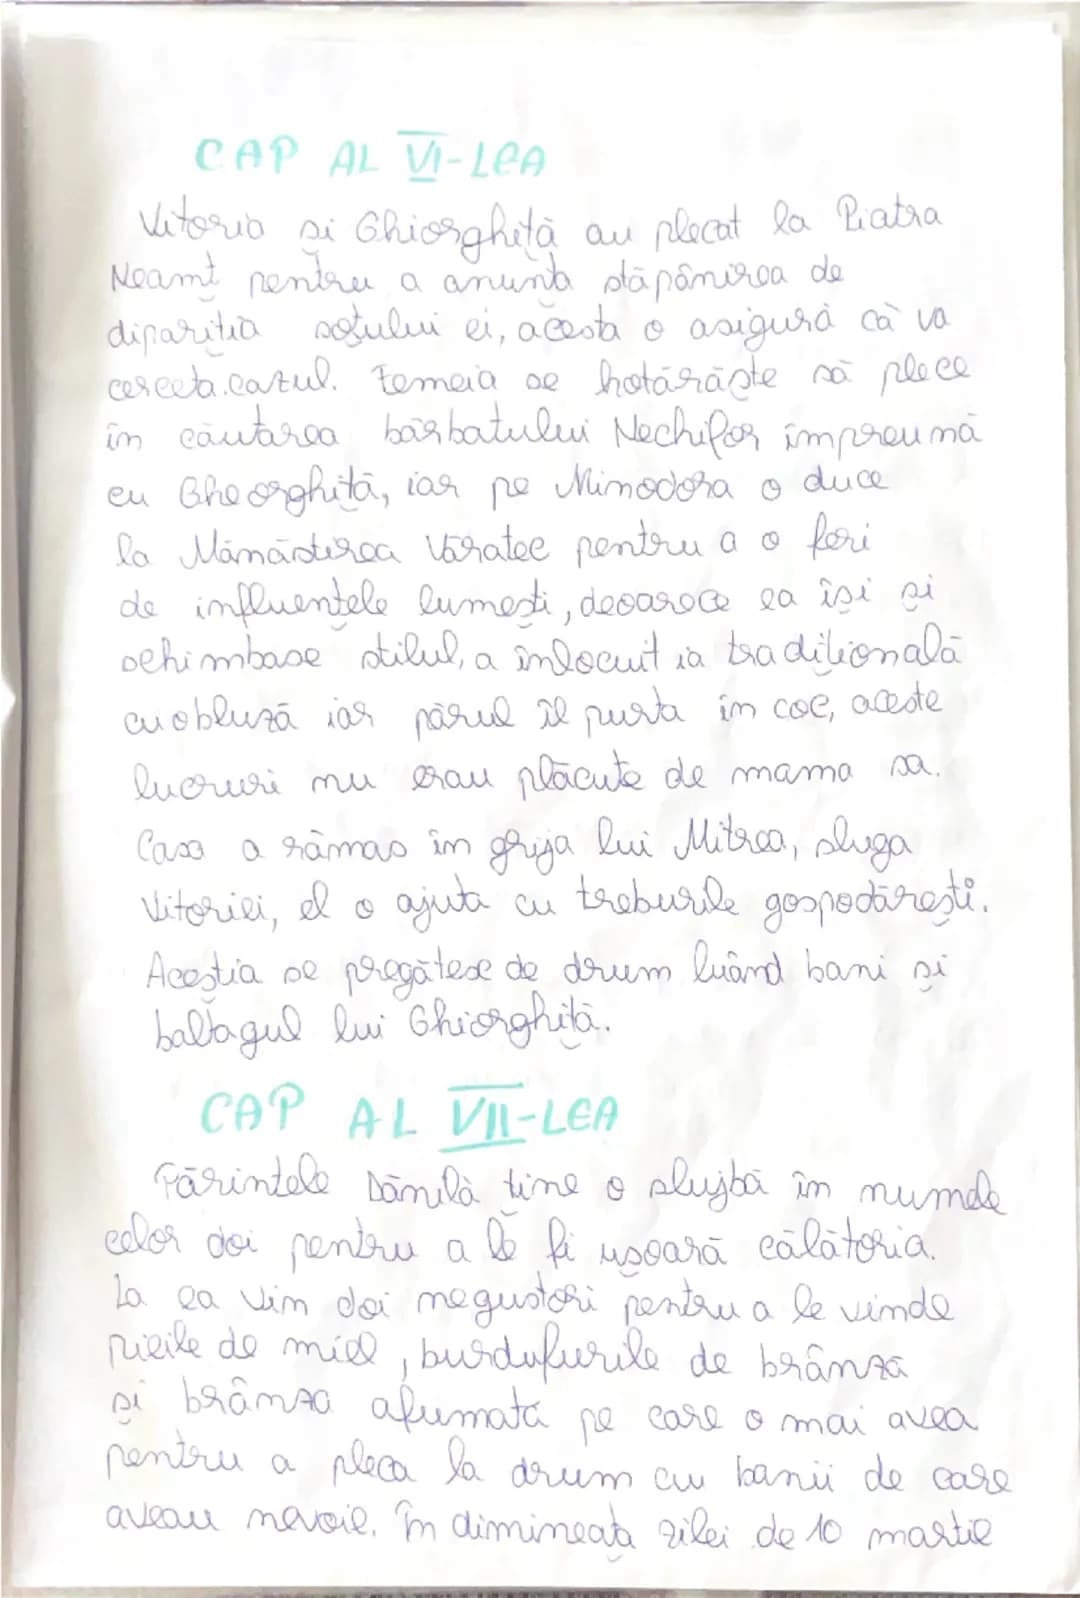 CAP AL VI-LEA
Vitoria și Ghiorghiță au plecat la Piatra
Neamț pentru a anunța stăpânirea de
dipariția soțului ei, acesta o asigură că va
cerceta cazul. Femeia se hotărăște să plece
în căutarea bărbatului Nechifor împreună
cu Gheorghiță, iar pe Minodora o duce
la Mănăstirea Văratec pentru a o feri
de influențele lumești, deoarece ea își și
schimbase stilul, a înlocuit ia tradițională
cu o bluză iar părul îl purta în coc, aceste
lucruri nu erau plăcute de mama sa.
Casa a rămas în grija lui Mitrea, sluga
Vitoriei, el o ajuta cu treburile gospodărești.
Aceștia se pregătesc de drum luând bani și
baltagul lui Ghiorghiță.
CAP AL VII-LEA
Părintele Dănilă ține o slujbă în numele
celor doi pentru a le fi ușoară călătoria.
La ea vin doi negustori pentru a le vinde
pieile de miel, burdufurile de brânză
și brânza afumată pe care o mai avea
pentru a pleca la drum cu banii de care
aveau nevoie. În dimineața zilei de 10 martie